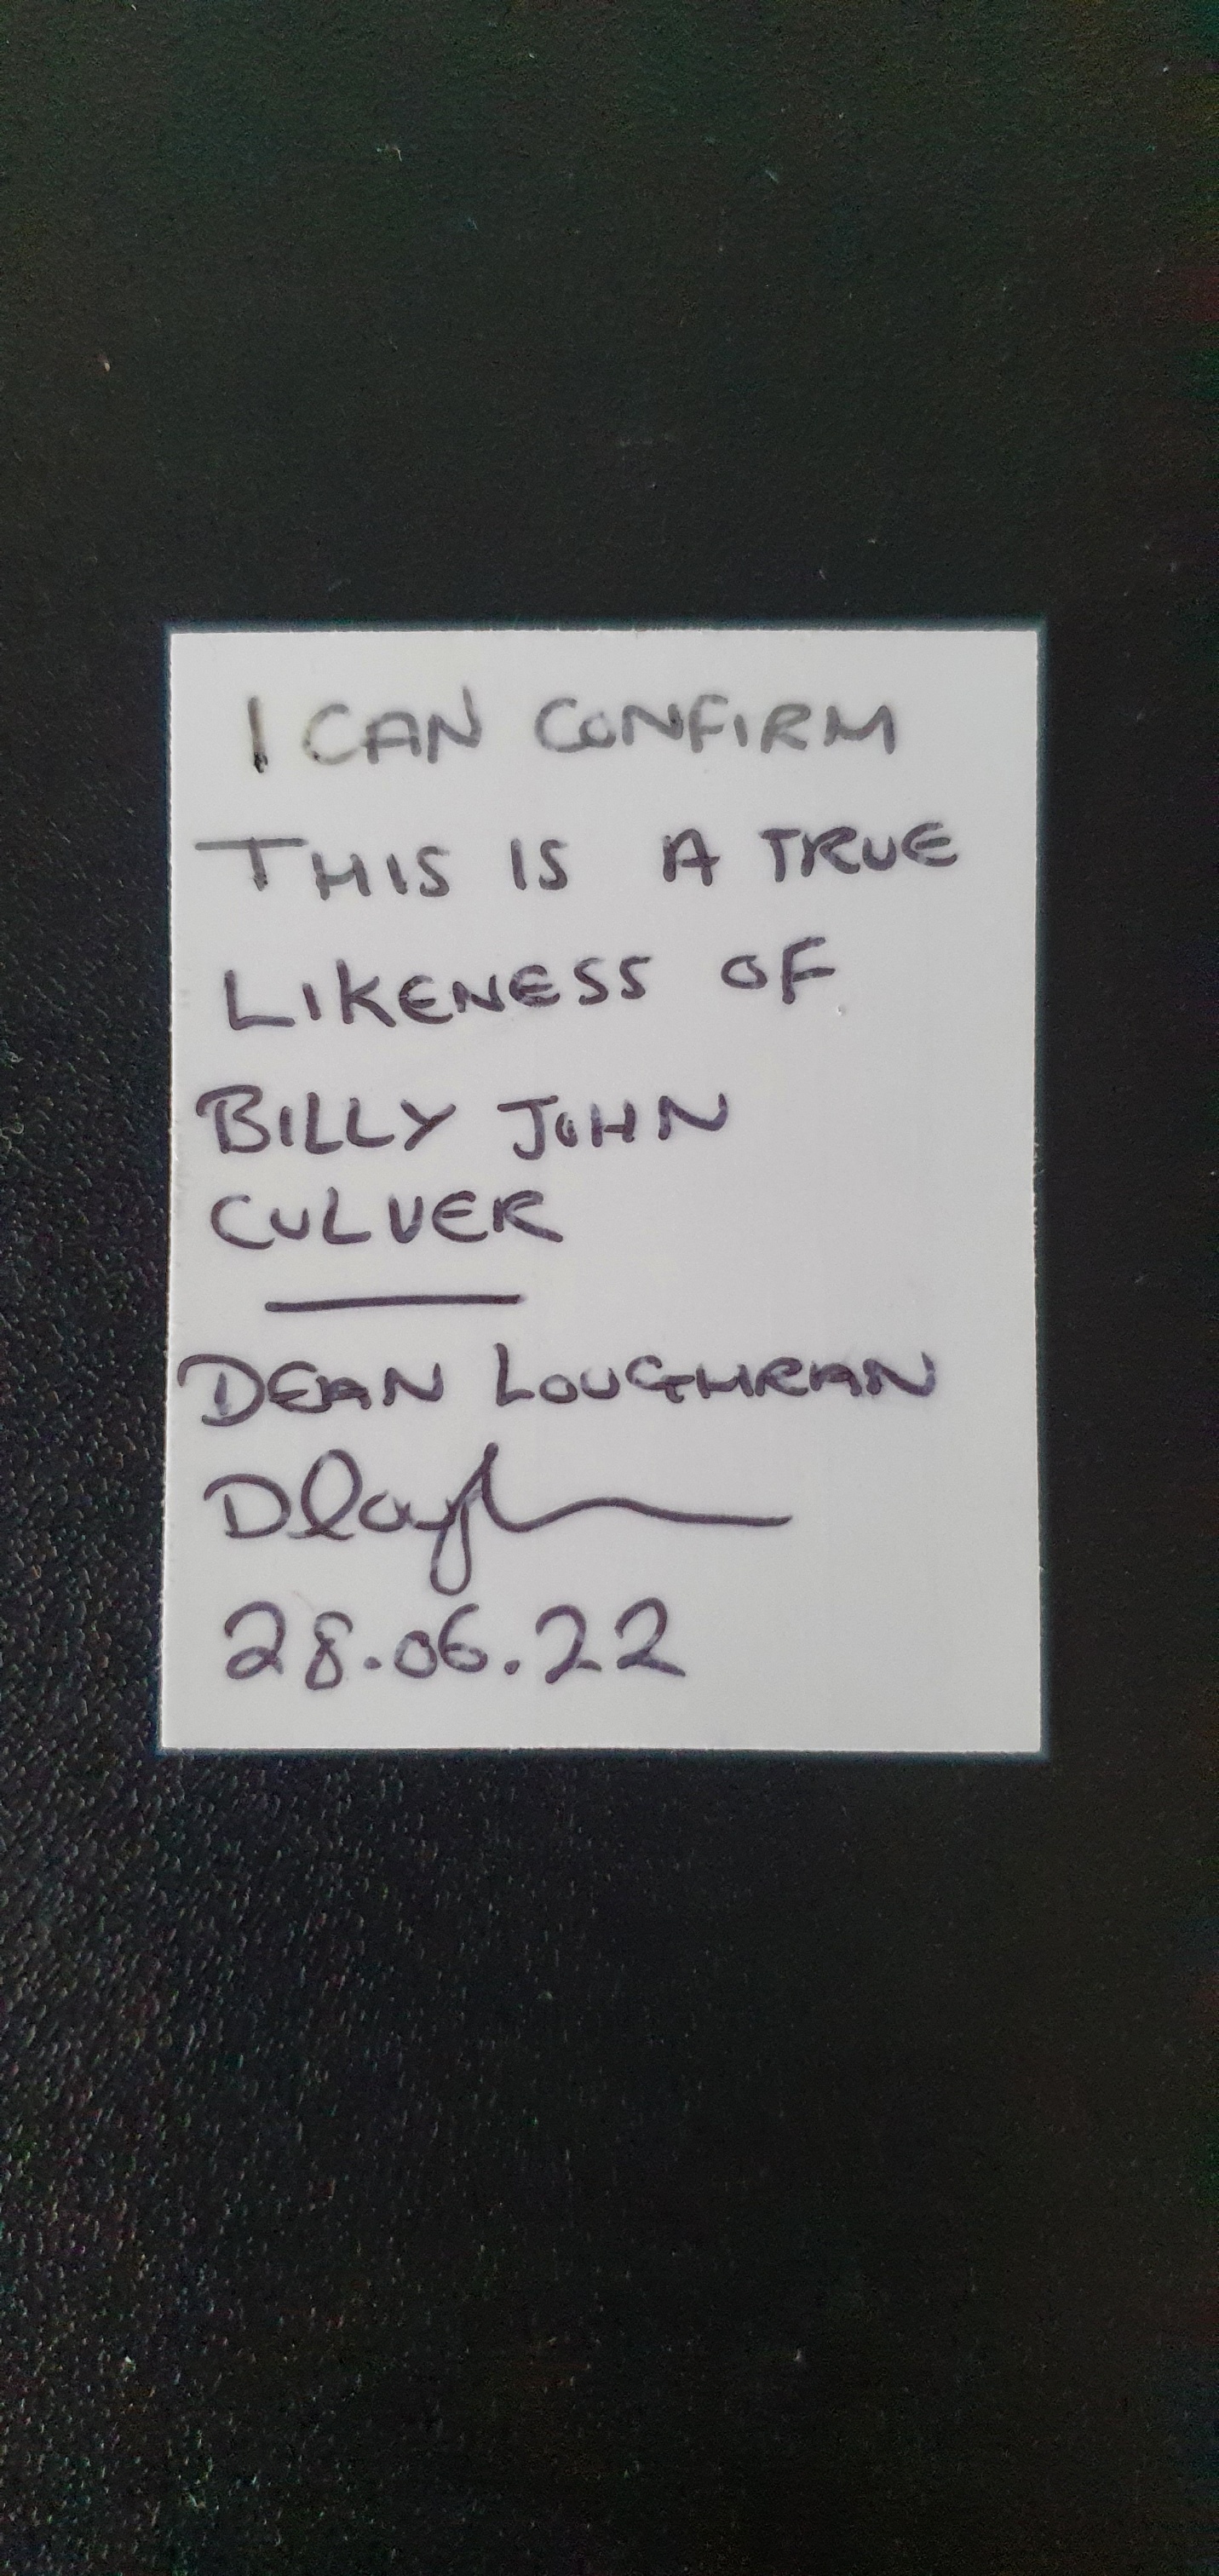 I CAN CONFIRM
THIS IS A TRUE
LIKENESS OF
BILLY JOHN
CULVER
DEAN LOUGHRAN
28.06.22